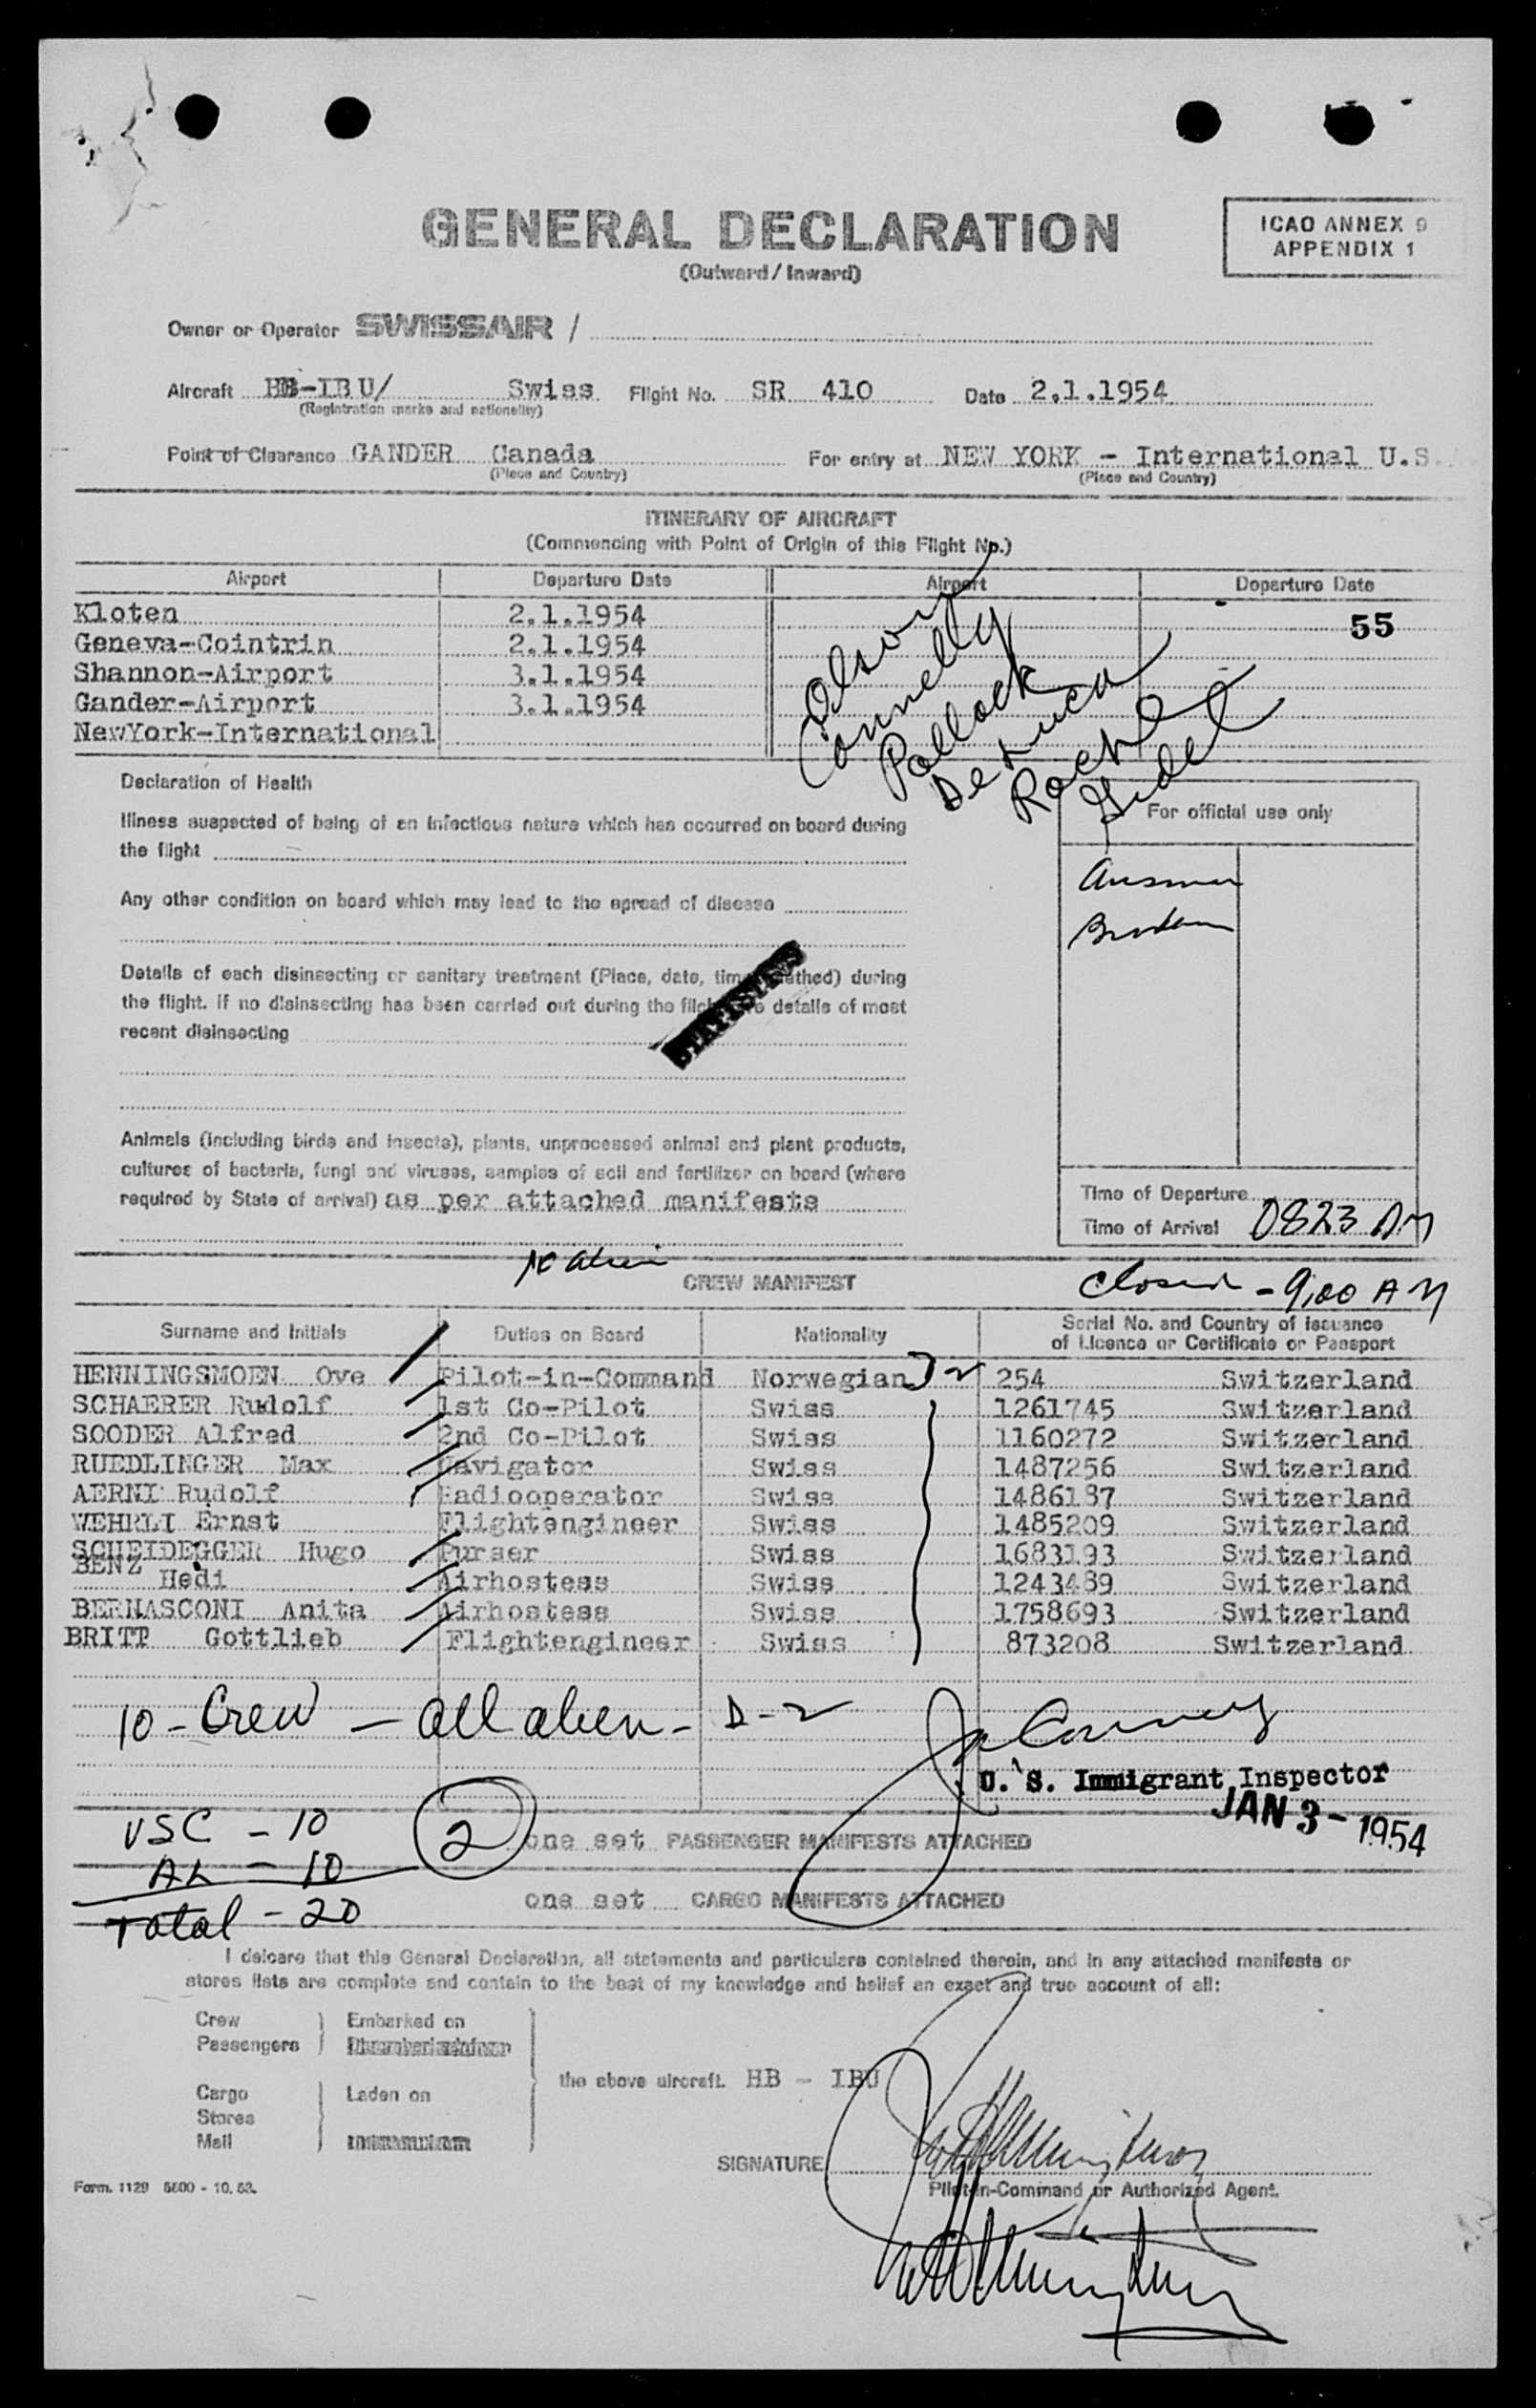 GENERAL DECLARATION
(Outward / Inward)
ICAO ANNEX 9
APPENDIX 1
Owner or Operator SWISSAIR /
Aircraft HB-IBU/ Swiss Flight No. SR 410 Date 2.1.1954
(Registration marks and nationality)
Point of Clearance GANDER Canada For entry at NEW YORK - International U.S.
(Place and Country) (Place and Country)
ITINERARY OF AIRCRAFT
(Commencing with Point of Origin of this Flight No.)
Airport Departure Date Airport Departure Date
Kloten 2.1.1954
55
Geneva-Cointrin 2.1.1954
Shannon-Airport 3.1.1954
Gander-Airport 3.1.1954
NewYork-International
Olson
Connelly
Pollack
De Luca
Roche
Gidel
Declaration of Health
Illness suspected of being of an infectious nature which has occurred on board during
the flight
Any other condition on board which may lead to the spread of disease
Details of each disinsecting or sanitary treatment (Place, date, time, method) during
the flight. If no disinsecting has been carried out during the flight give details of most
recent disinsecting
STATISTICS
Animals (including birds and insects), plants, unprocessed animal and plant products,
cultures of bacteria, fungi and viruses, samples of soil and fertilizer on board (where
required by State of arrival) as per attached manifests
For official use only
Time of Departure
Time of Arrival 0823 AM
CREW MANIFEST
Closed - 9:00 AM
Surname and Initials Duties on Board Nationality Serial No. and Country of issuance
of Licence or Certificate or Passport
HENNINGSMOEN Ove Pilot-in-Command Norwegian D-2 254 Switzerland
SCHAERER Rudolf 1st Co-Pilot Swiss 1261745 Switzerland
SOODER Alfred 2nd Co-Pilot Swiss 1160272 Switzerland
RUEDLINGER Max Navigator Swiss 1487256 Switzerland
AERNI Rudolf Radiooperator Swiss 1486187 Switzerland
WEHRLI Ernst Flightengineer Swiss 1485209 Switzerland
SCHEIDEGGER Hugo Purser Swiss 1683193 Switzerland
BENZ Hedi Airhostess Swiss 1243489 Switzerland
BERNASCONI Anita Airhostess Swiss 1758693 Switzerland
BRITT Gottlieb Flightengineer Swiss 873208 Switzerland
10 - Crew - all alien - D-2
U. S. Immigrant Inspector
JAN 3 - 1954
USC - 10
AL - 10
Total - 20
2
one set PASSENGER MANIFESTS ATTACHED
one set CARGO MANIFESTS ATTACHED
I delcare that this General Declaration, all statements and particulars contained therein, and in any attached manifests or
stores lists are complete and contain to the best of my knowledge and belief an exact and true account of all:
Crew
Passengers
Embarked on
Cargo
Stores
Mail
Laden on
the above aircraft. HB - IBU
SIGNATURE
Pilot-in-Command or Authorized Agent.
Form. 1129 5500 - 10. 53.